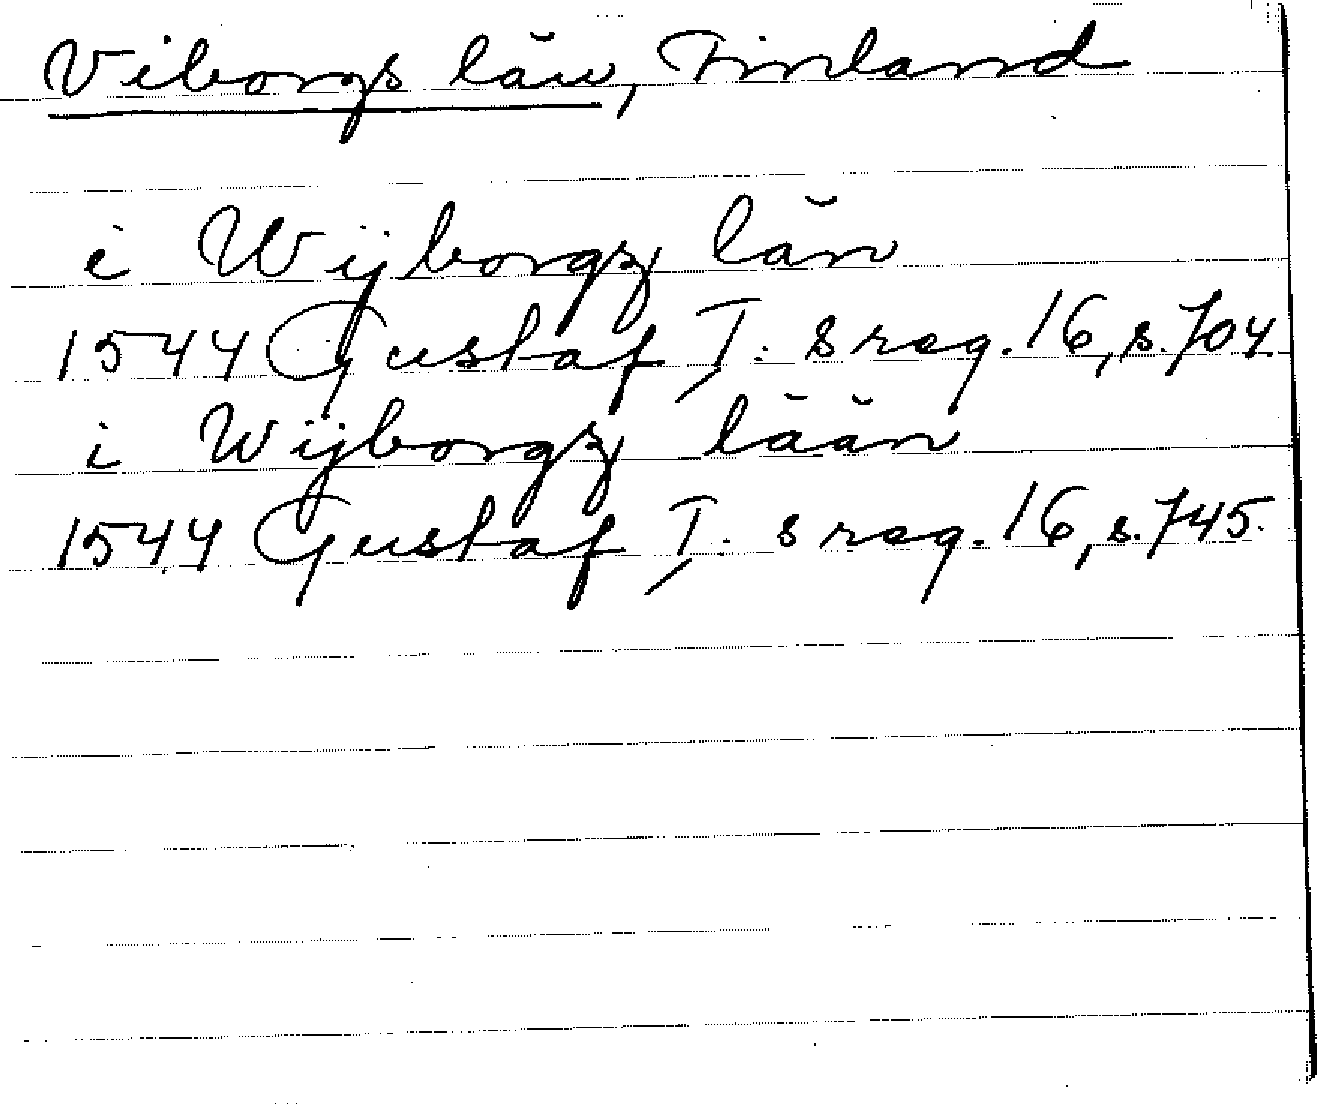 Viborgs län, Finland
i Wijborgz län
1544 Gustaf I:s reg. 16, s. 704.
i Wijborgz lään
1544 Gustaf I:s reg. 16, s. 745.